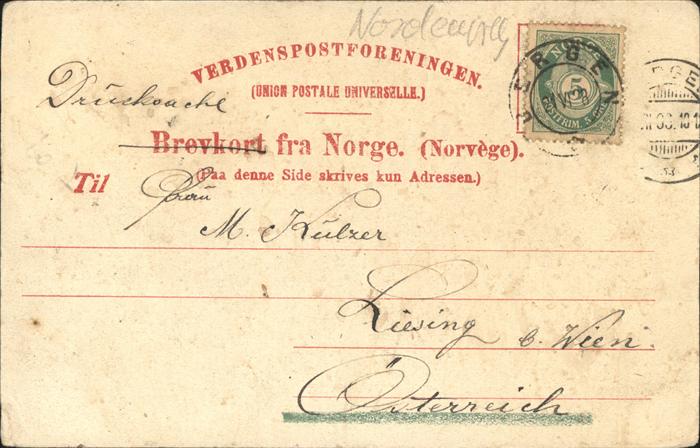 VERDENSPOSTFORENINGEN.
(UNION POSTALE UNIVERSELLE.)
Drucksache
Brevkort fra Norge. (Norvège).
(Paa denne Side skrives kun Adressen.)
Til Frau
M. Kulzer
Liesing b. Wien.
Österreich
BERGEN
NORGE
5
POSTFRIM. 5